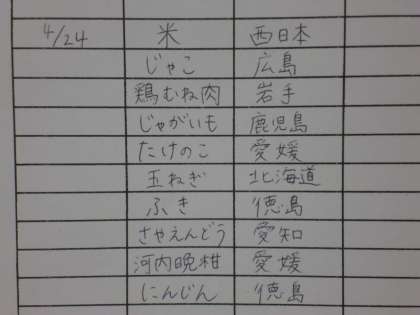 4/24 米 西日本
じゃこ 広島
鶏むね肉 岩手
じゃがいも 鹿児島
たけのこ 愛媛
玉ねぎ 北海道
ふき 徳島
さやえんどう 愛知
河内晩柑 愛媛
にんじん 徳島